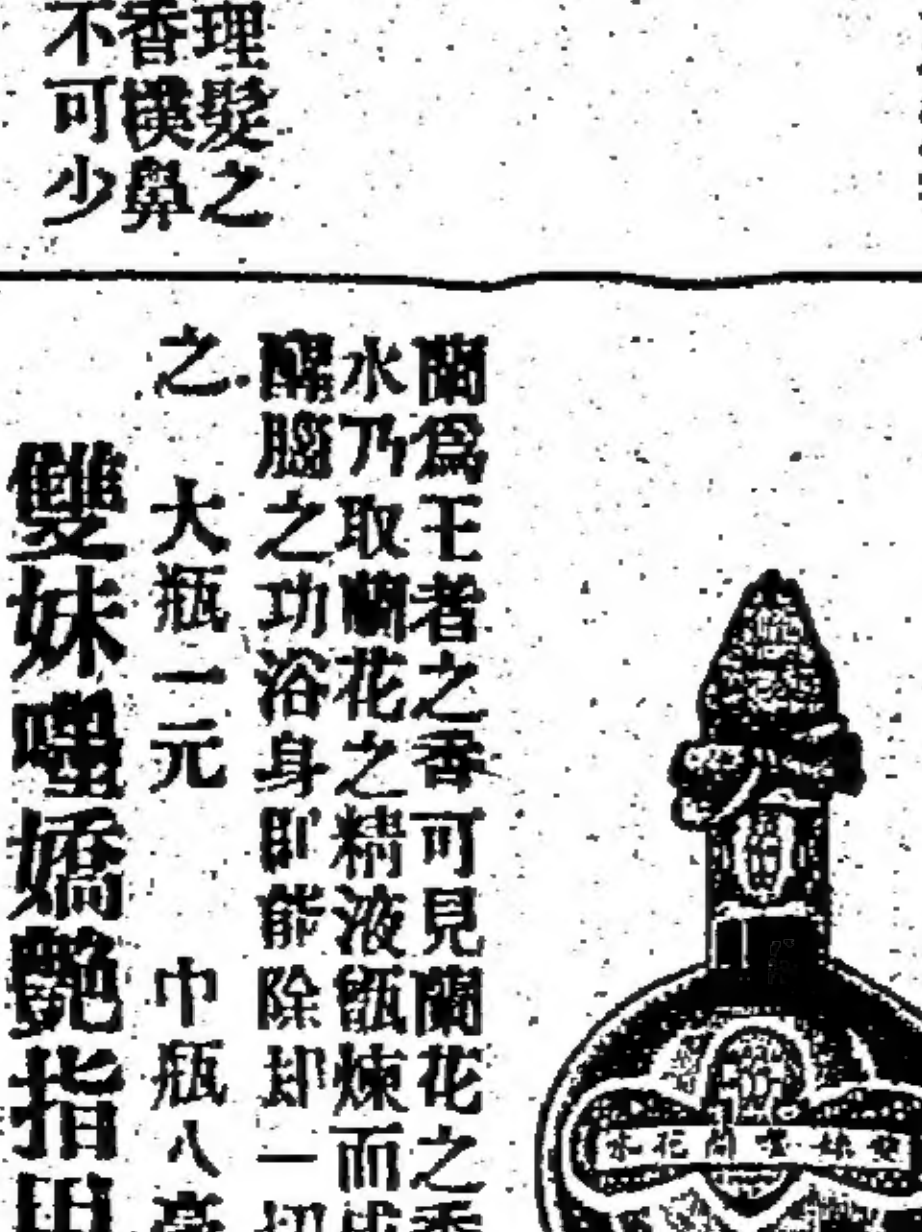 理髮之
香撲鼻
不可少
蘭爲王者之香可見蘭花之香
水乃取蘭花之精液甑煉而成
醒腦之功浴身卽能除却一切
之 大瓶一元 中瓶八毫
雙妹嚜嬌艷指甲
雙妹嚜蘭花水